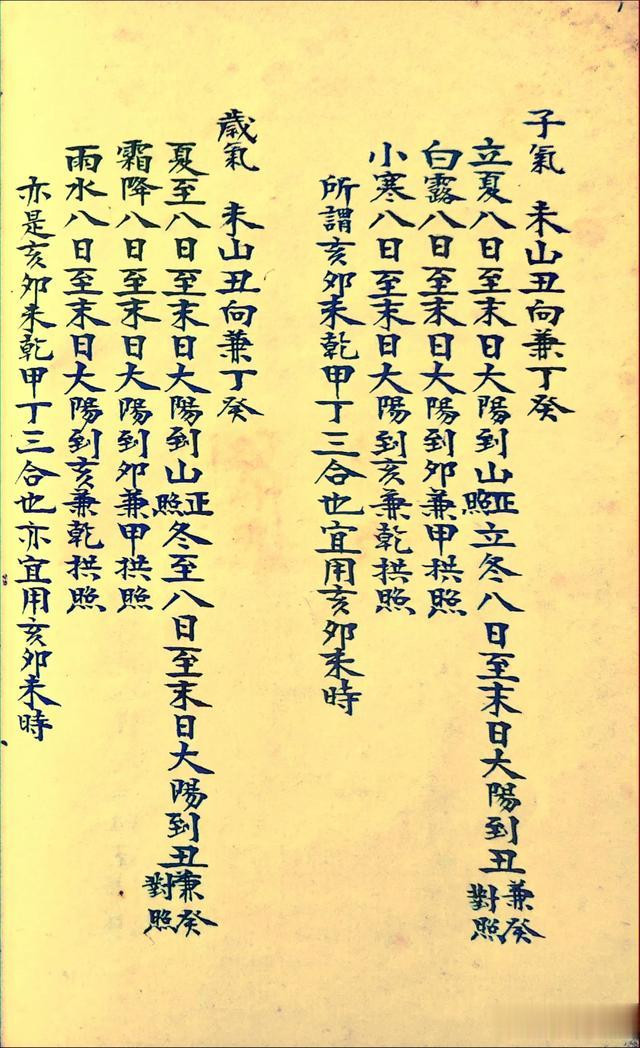 子氣 未山丑向兼丁癸
立夏八日至末日大陽到山正照立冬八日至末日大陽到丑兼癸對照
白露八日至末日大陽到卯兼甲拱照
小寒八日至末日大陽到亥兼乾拱照
所謂亥卯未乾甲丁三合也宜用亥卯未時
歲氣 未山丑向兼丁癸
夏至八日至末日大陽到山正照冬至八日至末日大陽到丑兼癸對照
霜降八日至末日大陽到卯兼甲拱照
雨水八日至末日大陽到亥兼乾拱照
亦是亥卯未乾甲丁三合也亦宜用亥卯未時